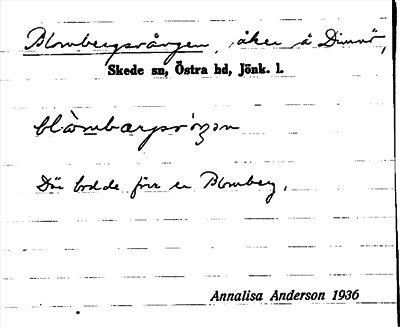 Blombergsvången, åker å Dimnö,
Skede sn, Östra hd, Jönk. l.
Där bodde förr en Blomberg.
Annalisa Anderson 1936